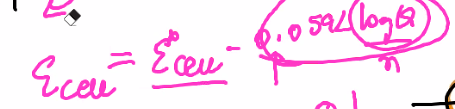 Ecell = E°cell - 0.0592 log Q / n